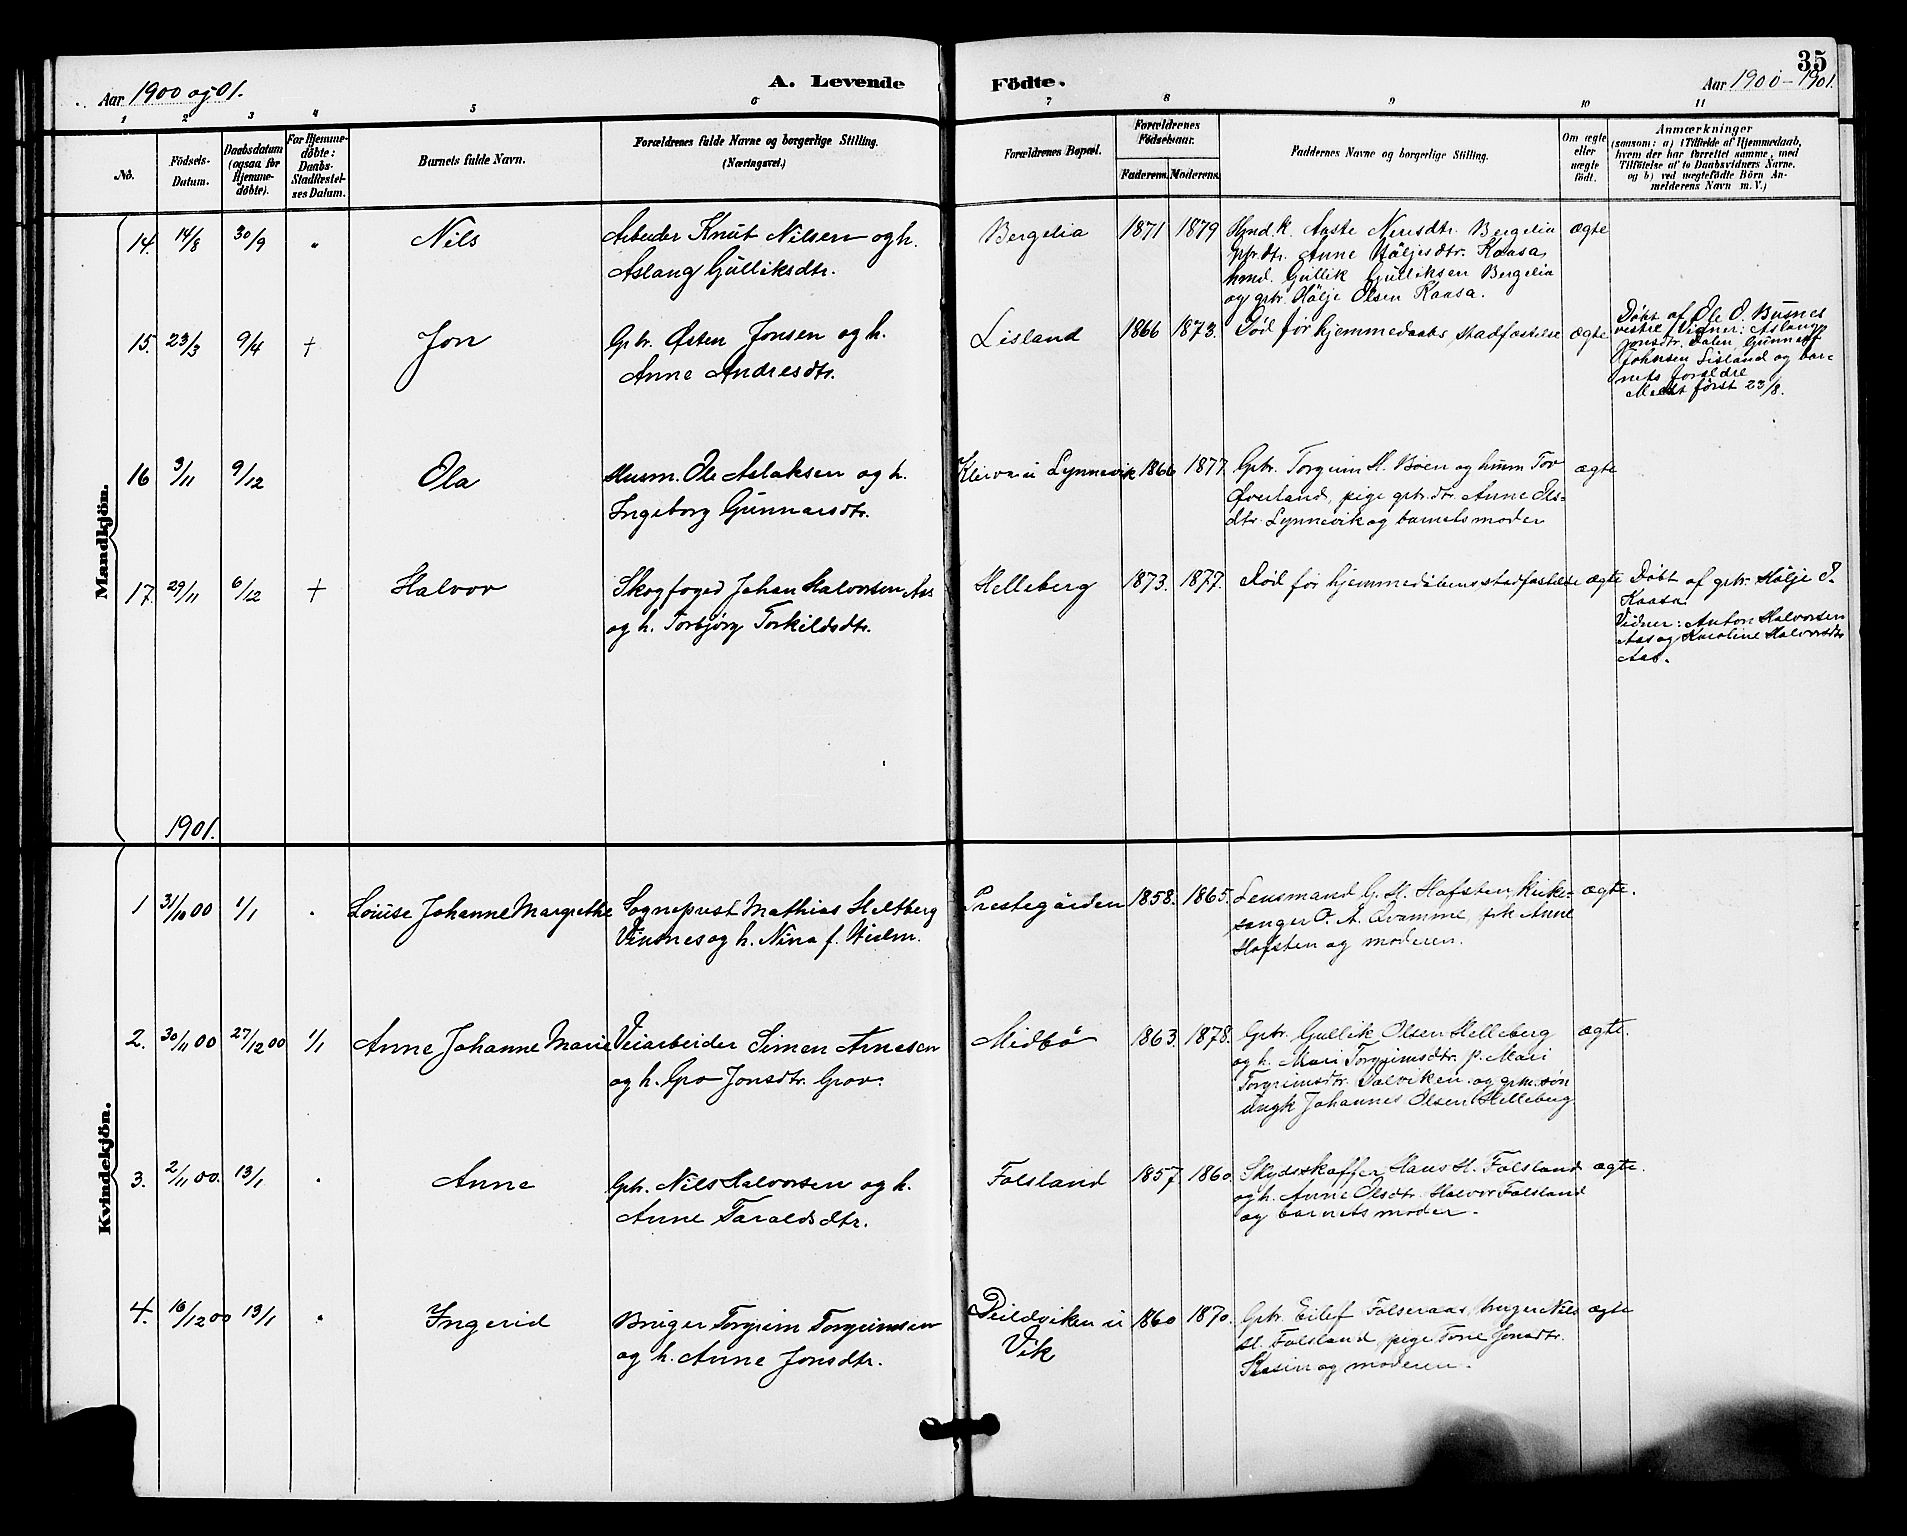 35
Aar 1900 og 01.
A. Levende
Födte.
Aar 1900–1901.
1 2 3 4 5 6 7 8 9 10 11
No.
Födsels-
Datum.
Daabsdatum
(ogsaa for
Hjemme-
döbte).
For Hjemme-
döbte:
Daabs-
Stadfæstel-
ses Datum.
Barnets fulde Navn.
Forældrenes fulde Navne og borgerlige Stilling.
(Næringsvei.)
Forældrenes Bopæl.
Forældrenes
Födselsaar.
Faderens. Moderens.
Faddernes Navne og borgerlige Stilling.
Om ægte
eller
uægte
födt.
Anmærkninger
(saasom: a) i Tilfælde af Hjemmedaab,
hvem der har forrettet samme, med
Tilföielse af to Daabsvidners Navne,
og b) ved uægtefödte Börn An-
melderens Navn m. V.)
Mandkjön.
14. 14/8 30/9 „ Nils
Arbeider Knut Nilsen og h.
Aslaug Gulliksdtr.
Bergelia 1871 1879
Hmd.k. Aaste Neresdtr. Bergelia
gbr.dtr. Anne Höljesdtr. Kaasa,
hmd. Gullik Gulliksen Bergelia
og gbr. Hölje Olsen Kaasa.
ægte
15. 23/3 9/4 + Jon
Gbr. Østen Jonsen og h.
Anne Andresdtr.
Lisland 1866 1873.
Död før hjemmedaabs stadfæstelse ægte
Döbt af Ole O. Busnes
vestre. Vidner: Aslaug
Jonsdtr. Dalen, Gunnulf
Johnsen Lisland og bar-
nets forældre
Meldt først 23/8.
16 3/11 9/12 Ola
Husm. Ole Aslaksen og h.
Ingeborg Gunnarsdtr.
Kleiva u Lynnevik 1866 1877.
Gbr. Torgrim H. Bøen og husm Tov
Øverland, pige gbr.dtr. Anne Ols-
dtr. Lynnevik og barnets moder
ægte
17. 29/11 6/12 + Halvor
Skogfoged Johan Halvorsen Aas
og h. Torbjörg Torkildsdtr.
Helleberg 1873. 1877.
Død før hjemmedåbens stadfæstelse ægte
Döbt af gbr. Hölje O.
Kaasa.
Vidner: Anton Halvorsen
Aas og Karoline Halvorsdtr
Aas.
1901.
Kvindekjön.
1 31/10 00 1/1 „ Louise Johanne Margrethe
Sogneprest Mathias Heltberg
Vinsnes og h. Nina f.
Prestegården 1858. 1865.
Lensmand G. H. Hafsten, kirke-
sanger O. A. Qvamme, frk Anne
Hafsten og moderen.
ægte.
2. 30/11 00 27/12 00 1/1 Anne Johanne Marie
Veiarbeider Simen Arnesen
og h. Gro Jonsdtr. Grov.
Midbö 1863. 1878.
Gbr. Gullik Olsen Helleberg
og h. Mari Torgrimsdtr. p. Mari
Torgrimsdtr. Dalviken og gbr. søn
ungk Johannes Olsen Helleberg
ægte.
3. 2/11 00. 13/1 „ Anne
Gbr. Nils Halvorsen og h.
Anne Taraldsdtr.
Folsland 1857. 1860.
Skydsskaffer Hans H. Folsland
og h. Anne Olsdtr. Halvor Folsland
og barnets moder.
ægte.
4. 16/12 00 13/1 „ Ingerid
Bruger Torgrim Torgrimsen
og h. Anne Jonsdtr.
Peildviken u
Vik
1860 1870.
Gbr. Eilef Folseraas, bruger Nils
H. Folsland, pige Tone Jonsdtr.
Kasin og moderen.
ægte